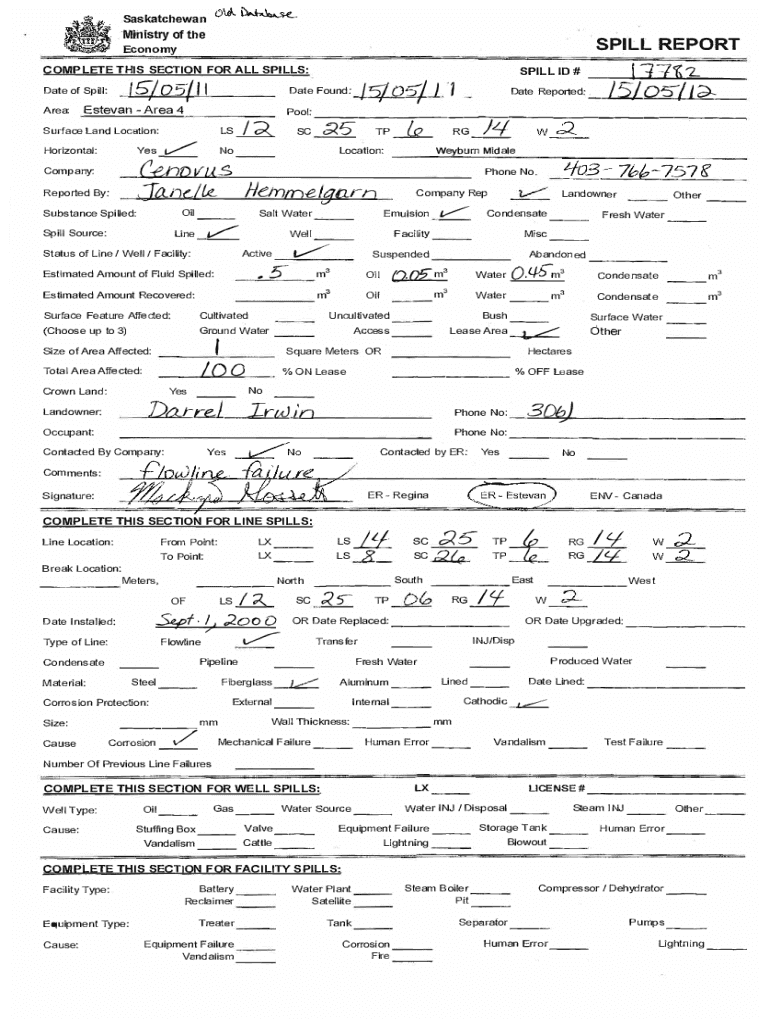 Saskatchewan Old Database
Ministry of the
Economy
SPILL REPORT
COMPLETE THIS SECTION FOR ALL SPILLS: SPILL ID # 17782
Date of Spill: 15/05/11 Date Found: 15/05/11 Date Reported: 15/05/12
Area: Estevan - Area 4 Pool:
Surface Land Location: LS 12 SC 25 TP 6 RG 14 W 2
Horizontal: Yes ✓ No Location: Weyburn Midale
Company: Cenovus Phone No. 403-766-7578
Reported By: Janelle Hemmelgarn Company Rep ✓ Landowner Other
Substance Spilled: Oil Salt Water Emulsion ✓ Condensate Fresh Water
Spill Source: Line ✓ Well Facility Misc
Status of Line / Well / Facility: Active ✓ Suspended Abandoned
Estimated Amount of Fluid Spilled: .5 m³ Oil 0.05 m³ Water 0.45 m³ Condensate m³
Estimated Amount Recovered: m³ Oil m³ Water m³ Condensate m³
Surface Feature Affected: Cultivated Uncultivated Bush Surface Water
(Choose up to 3) Ground Water Access Lease Area ✓ Other
Size of Area Affected: 1 Square Meters OR Hectares
Total Area Affected: 100 % ON Lease % OFF Lease
Crown Land: Yes No
Landowner: Darrel Irwin Phone No: 306)
Occupant: Phone No:
Contacted By Company: Yes ✓ No Contacted by ER: Yes No
Comments: flowline failure
Signature: ER - Regina ER - Estevan ENV - Canada
COMPLETE THIS SECTION FOR LINE SPILLS:
Line Location: From Point: LX LS 14 SC 25 TP 6 RG 14 W 2
To Point: LX LS 8 SC 26 TP 6 RG 14 W 2
Break Location:
Meters, North South East West
OF LS 12 SC 25 TP 06 RG 14 W 2
Date Installed: Sept. 1, 2000 OR Date Replaced: OR Date Upgraded:
Type of Line: Flowline ✓ Transfer INJ/Disp
Condensate Pipeline Fresh Water Produced Water
Material: Steel Fiberglass ✓ Aluminum Lined Date Lined:
Corrosion Protection: External Internal Cathodic ✓
Size: mm Wall Thickness: mm
Cause Corrosion ✓ Mechanical Failure Human Error Vandalism Test Failure
Number Of Previous Line Failures
COMPLETE THIS SECTION FOR WELL SPILLS: LX LICENSE #
Well Type: Oil Gas Water Source Water INJ / Disposal Steam INJ Other
Cause: Stuffing Box Valve Equipment Failure Storage Tank Human Error
Vandalism Cattle Lightning Blowout
COMPLETE THIS SECTION FOR FACILITY SPILLS:
Facility Type: Battery Water Plant Steam Boiler Compressor / Dehydrator
Reclaimer Satellite Pit
Equipment Type: Treater Tank Separator Pumps
Cause: Equipment Failure Corrosion Human Error Lightning
Vandalism Fire